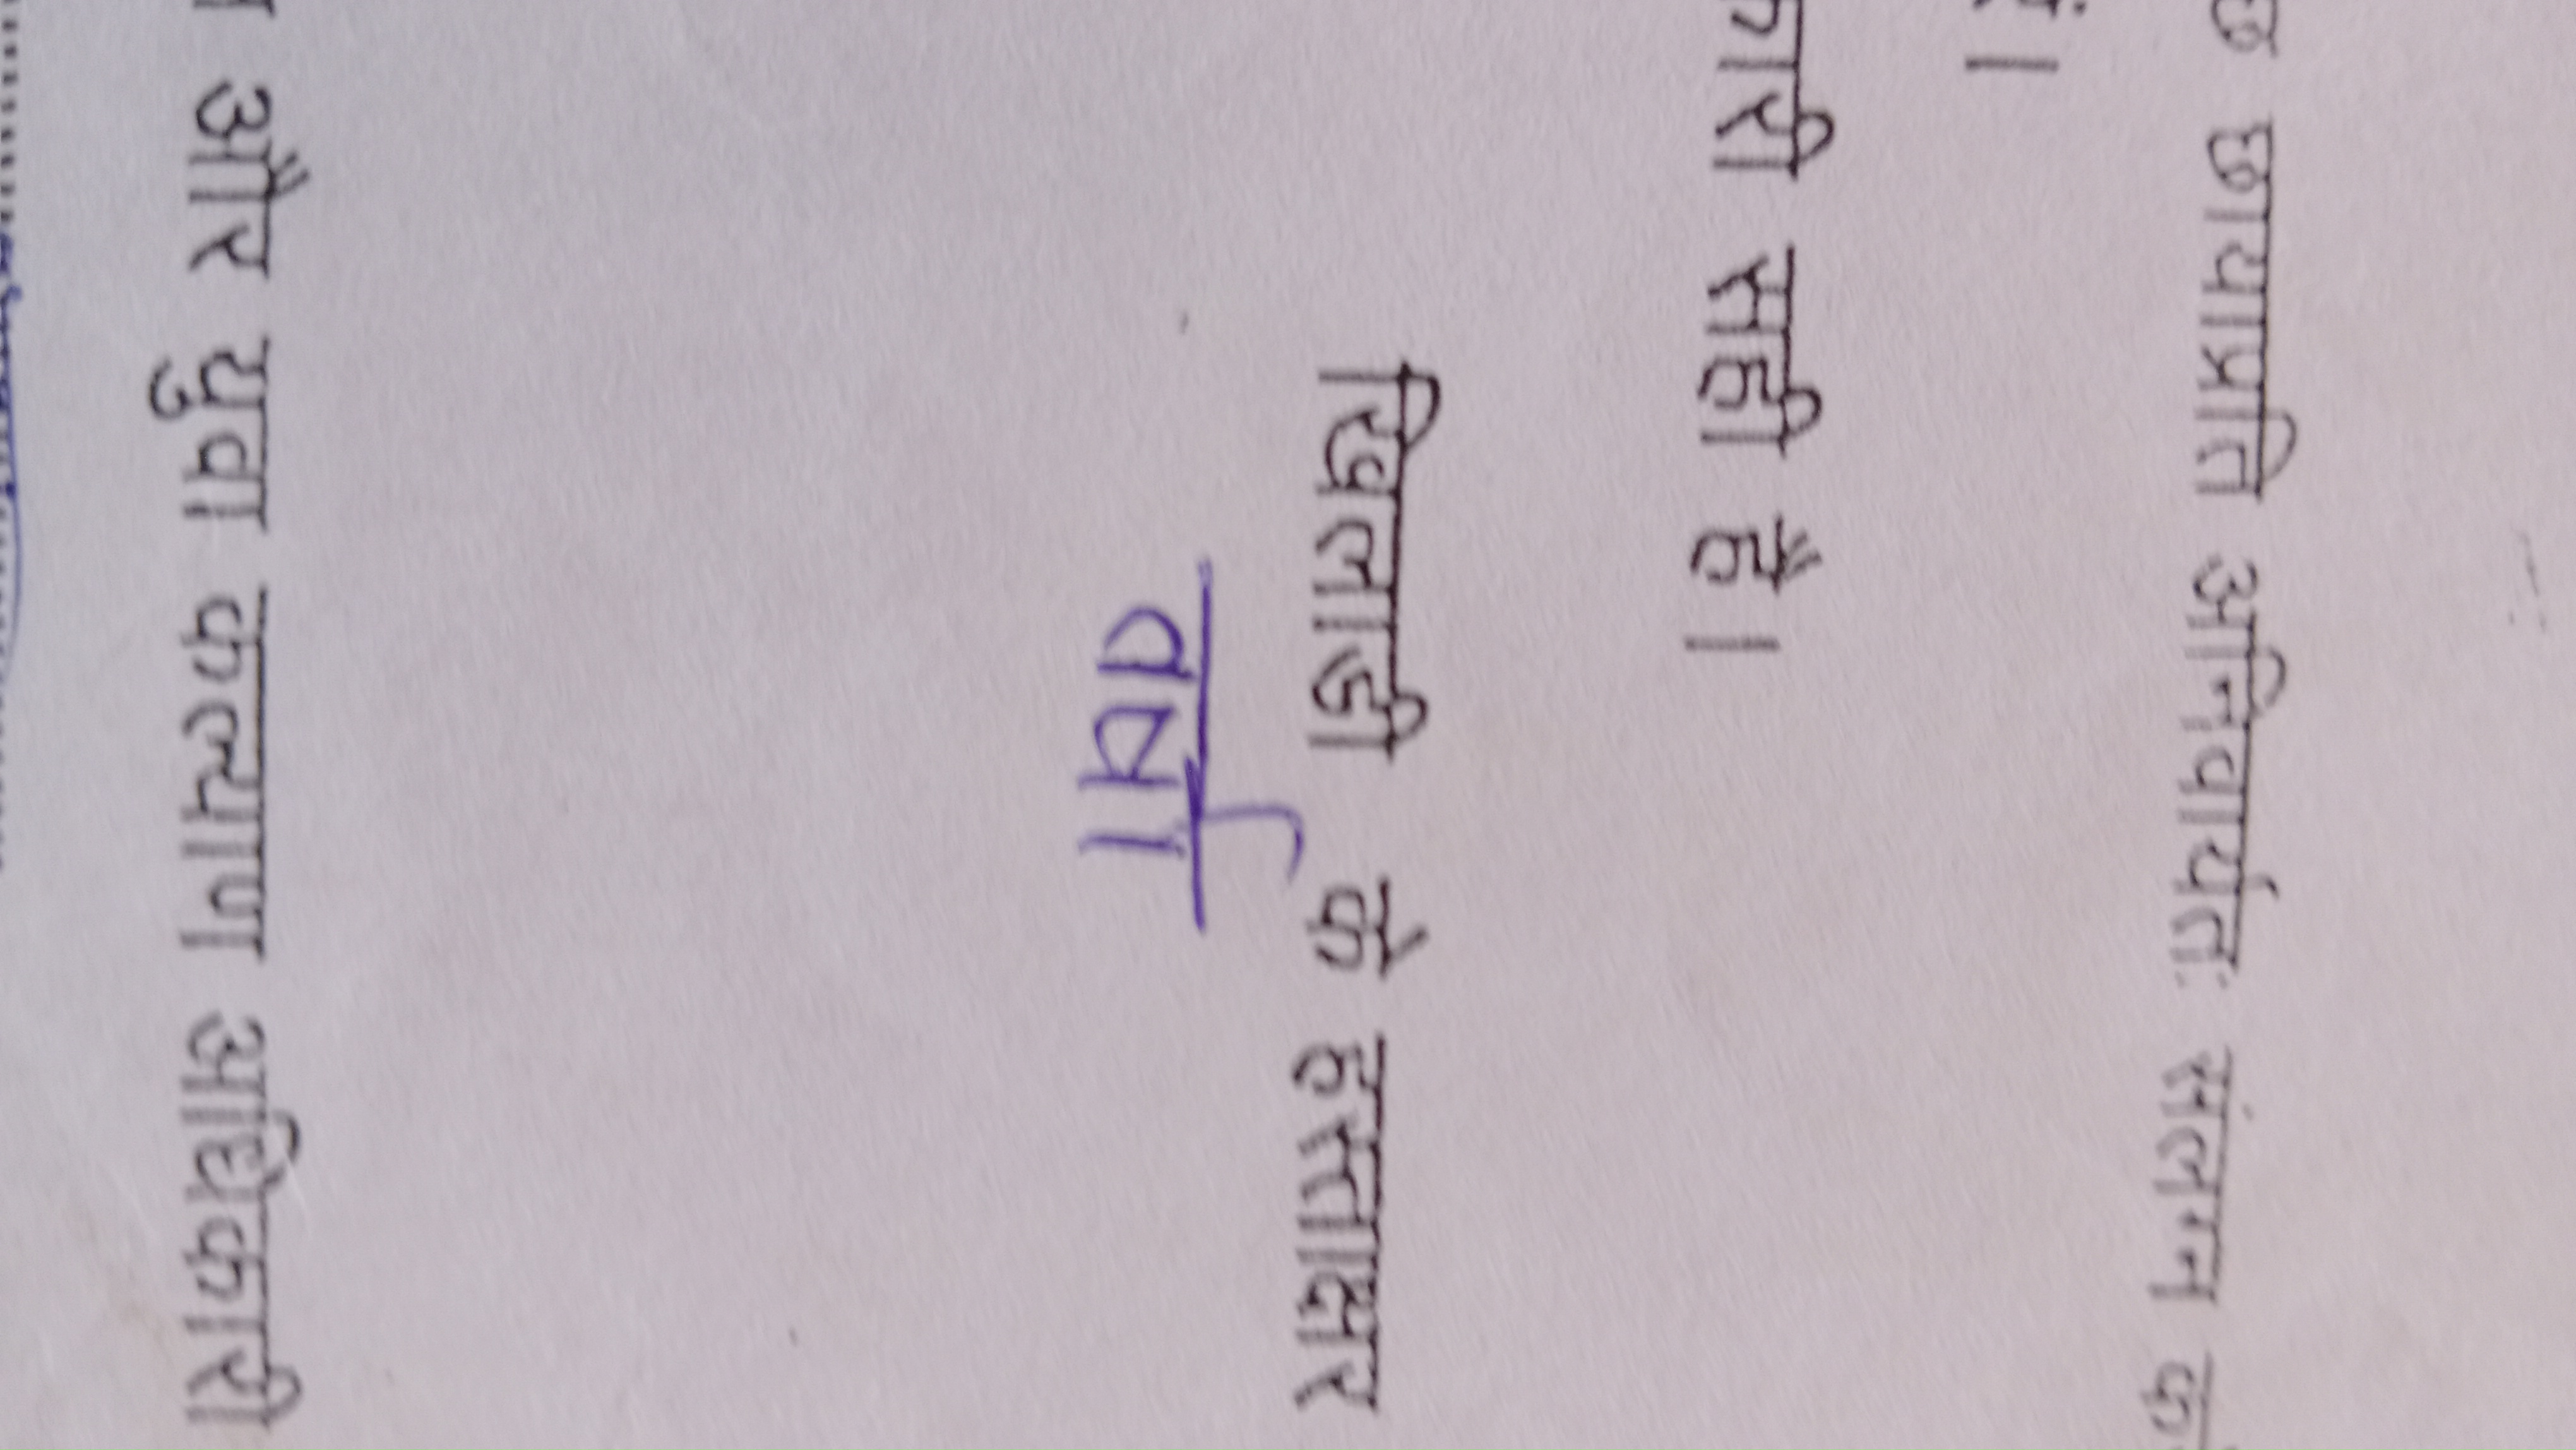 छ छायाप्रति अनिवार्यतः संलग्न क
।
कारी सही है।
खिलाडी के हस्ताक्षर
वर्षा
और युवा कल्याण अधिकारी